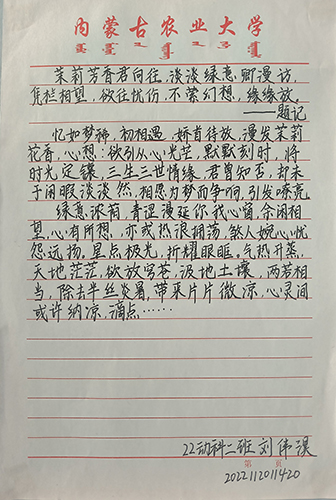 内蒙古农业大学
茉莉芳香君向往，淡淡绿意卿漫访，
凭栏相望，欲往忧伤，不萦幻想，缘缘放。
——题记
忆如梦神，初相遇，娇首待放，漫发茉莉
花香，心想：欲引从心光芒，默默刻时，将
时光定镶，三生三世情缘，君曾知否，却未
于闲暇淡淡然，相思为梦而争响，引发嘹亮
绿意浪荷，青涩漫延你我心窗，含闲相
望，心有所想，亦或热浪拥荡，煞人婉心忧
怨远扬，星点极光，折耀眼眶，气热升蒸，
天地茫茫，欲放穹苍，汲地土壤，两若相
当，除去半丝炎暑，带来片片微凉，心灵间
或许纳凉，滴点……
22动科二班 刘伟漠
第 页
2022112011420